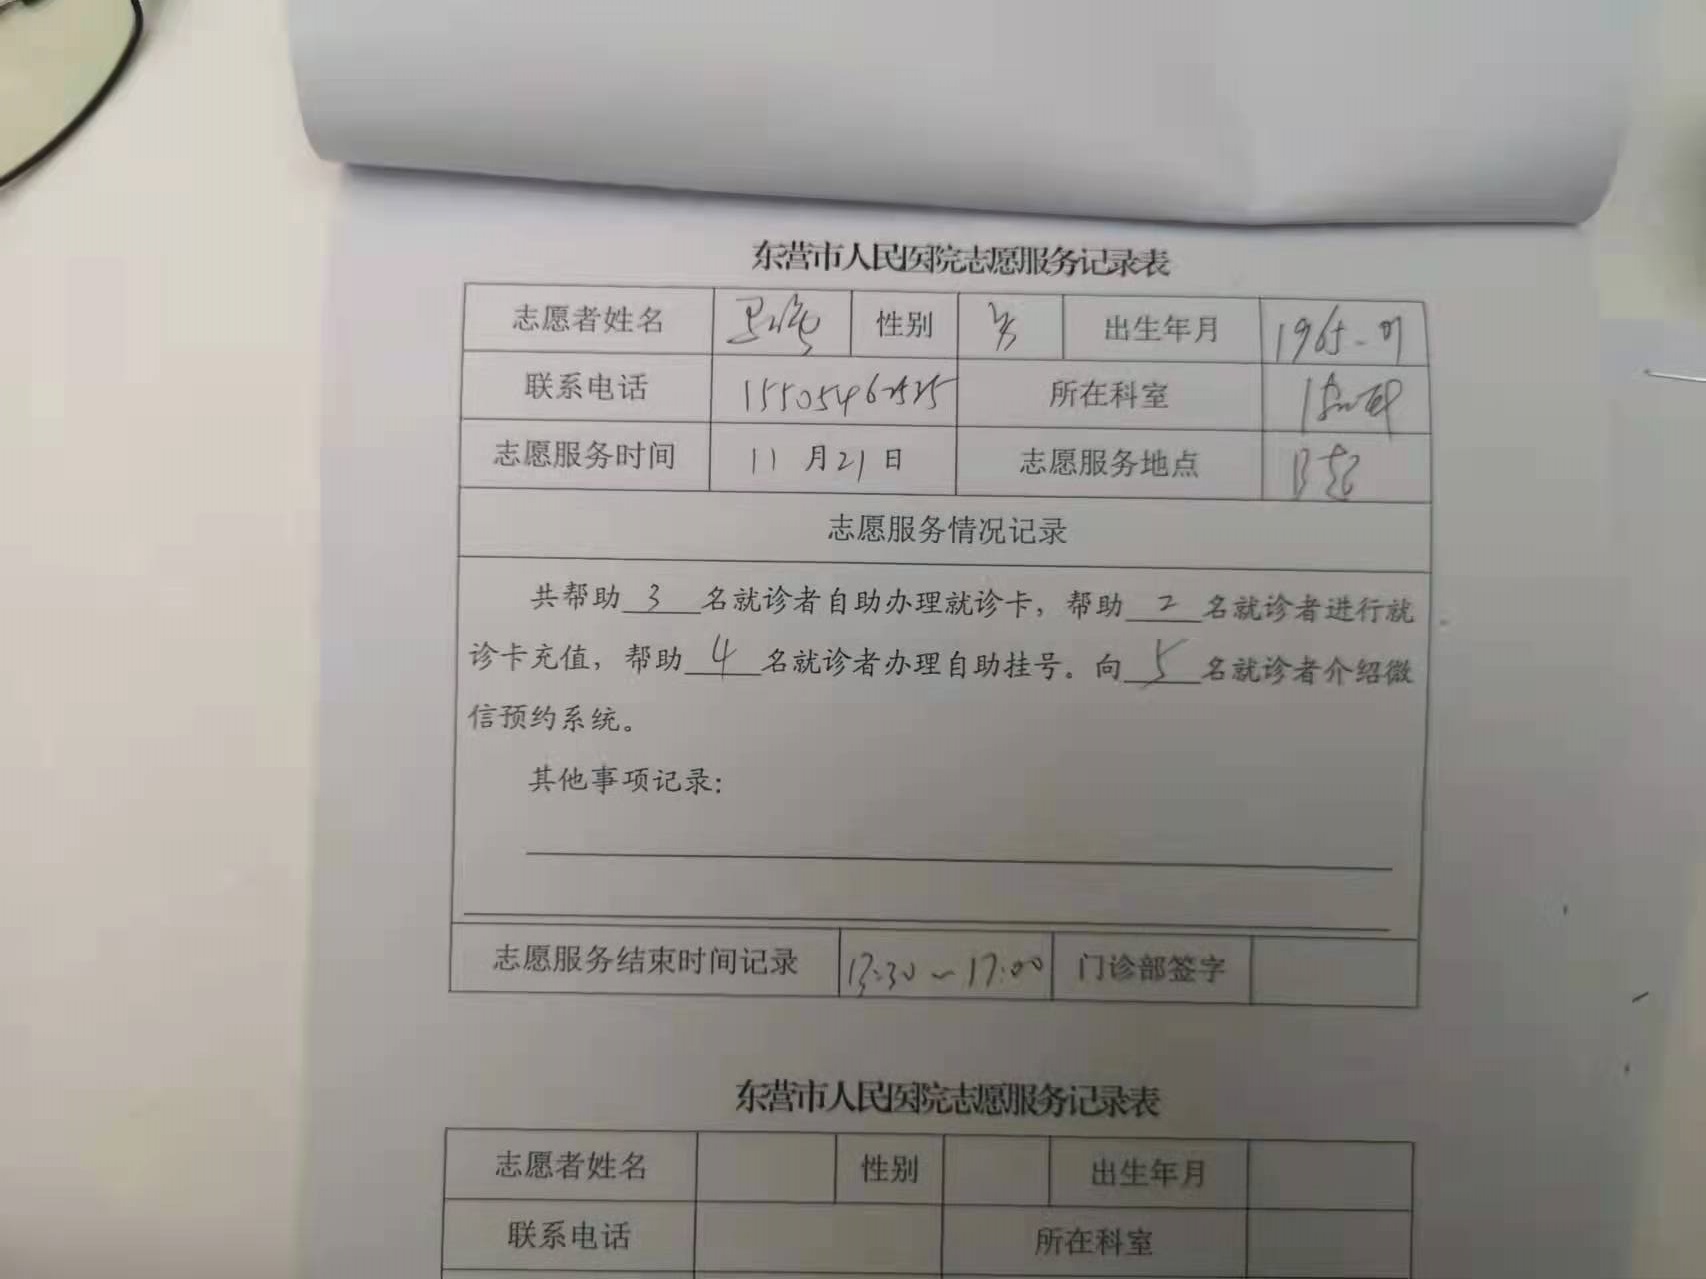 东营市人民医院志愿服务记录表
志愿者姓名 性别 男 出生年月 1965-
联系电话 所在科室
志愿服务时间 11月21日 志愿服务地点
志愿服务情况记录
共帮助 3 名就诊者自助办理就诊卡，帮助 2 名就诊者进行就
诊卡充值，帮助 4 名就诊者办理自助挂号。向 5 名就诊者介绍微
信预约系统。
其他事项记录：
志愿服务结束时间记录 13:30~17:00 门诊部签字
东营市人民医院志愿服务记录表
志愿者姓名 性别 出生年月
联系电话 所在科室